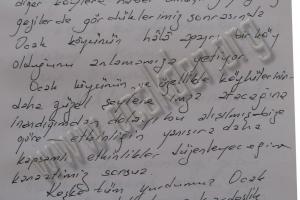 diğer köylere haber
gezilerde gördüklerimiz sonrasında
Ocak köyünün hâlâ bir köy
olduğunu anlamamıza yetiyor.
Ocak köyünün ve özellikle köylülerinin
daha güzel şeylere imza atacağına
inandığımdan dolayı bu alışılmış bize
göre etkinliğin yanısıra daha
kapsamlı etkinlikler düzenleyeceğine
kanaatimiz sonsuz.
Keşke tüm yurdumuz Ocak